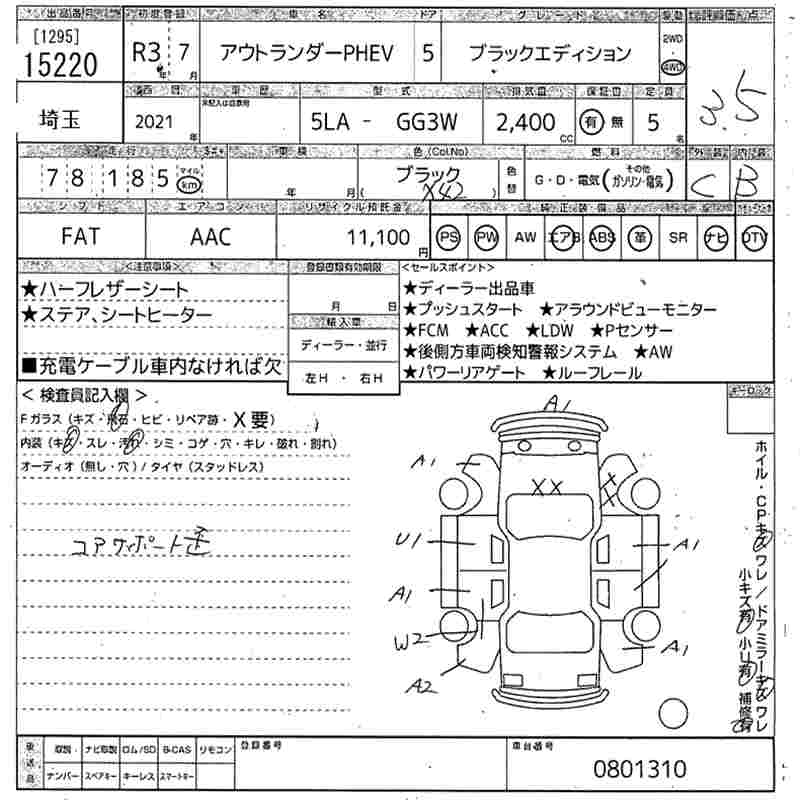 出品番号 初度登録 車名 ドア グレード 駆動 評価点
[1295]
15220 R3年 7月 アウトランダーPHEV 5 ブラックエディション 2WD 4WD 3.5
西暦 車歴 型式 排気量 保証書 定員
未記入は自家用
埼玉 2021年 5LA - GG3W 2,400cc 有 無 5名
走行 車検 色(Col.No) 燃料 外装 内装
78185 マイル km 年 月 ブラック (X42) 色替 G・D・電気(その他 ガソリン・電気) C B
シフト エアコン リサイクル預託金 純正装備品
FAT AAC 11,100円 PS PW AW エアB ABS 革 SR ナビ DTV
<注意事項> 登録書類有効期限 <セールスポイント>
★ハーフレザーシート
★ステア、シートヒーター
■充電ケーブル車内なければ欠
月 日
輸入車
ディーラー・並行
左H ・ 右H
★ディーラー出品車
★プッシュスタート ★アラウンドビューモニター
★FCM ★ACC ★LDW ★Pセンサー
★後側方車両検知警報システム ★AW
★パワーリアゲート ★ルーフレール
<検査員記入欄> キーロック
Fガラス(キズ・飛石・ヒビ・リペア跡・X要)
内装(キズ・スレ・汚れ・シミ・コゲ・穴・キレ・破れ・割れ)
オーディオ(無し・穴)/タイヤ(スタッドレス)
コアサポート歪
A1
A1
XX
XX
U1
A1
A1
W2
A1
A2
ホイル・CPキズワレ/ドアミラーキズワレ
小キズ有 小U有 補修有
車送品 取説 ナビ取説 ロム/SD B-CAS リモコン 登録番号 車台番号
ナンバー スペアキー キーレス スマートキー 0801310